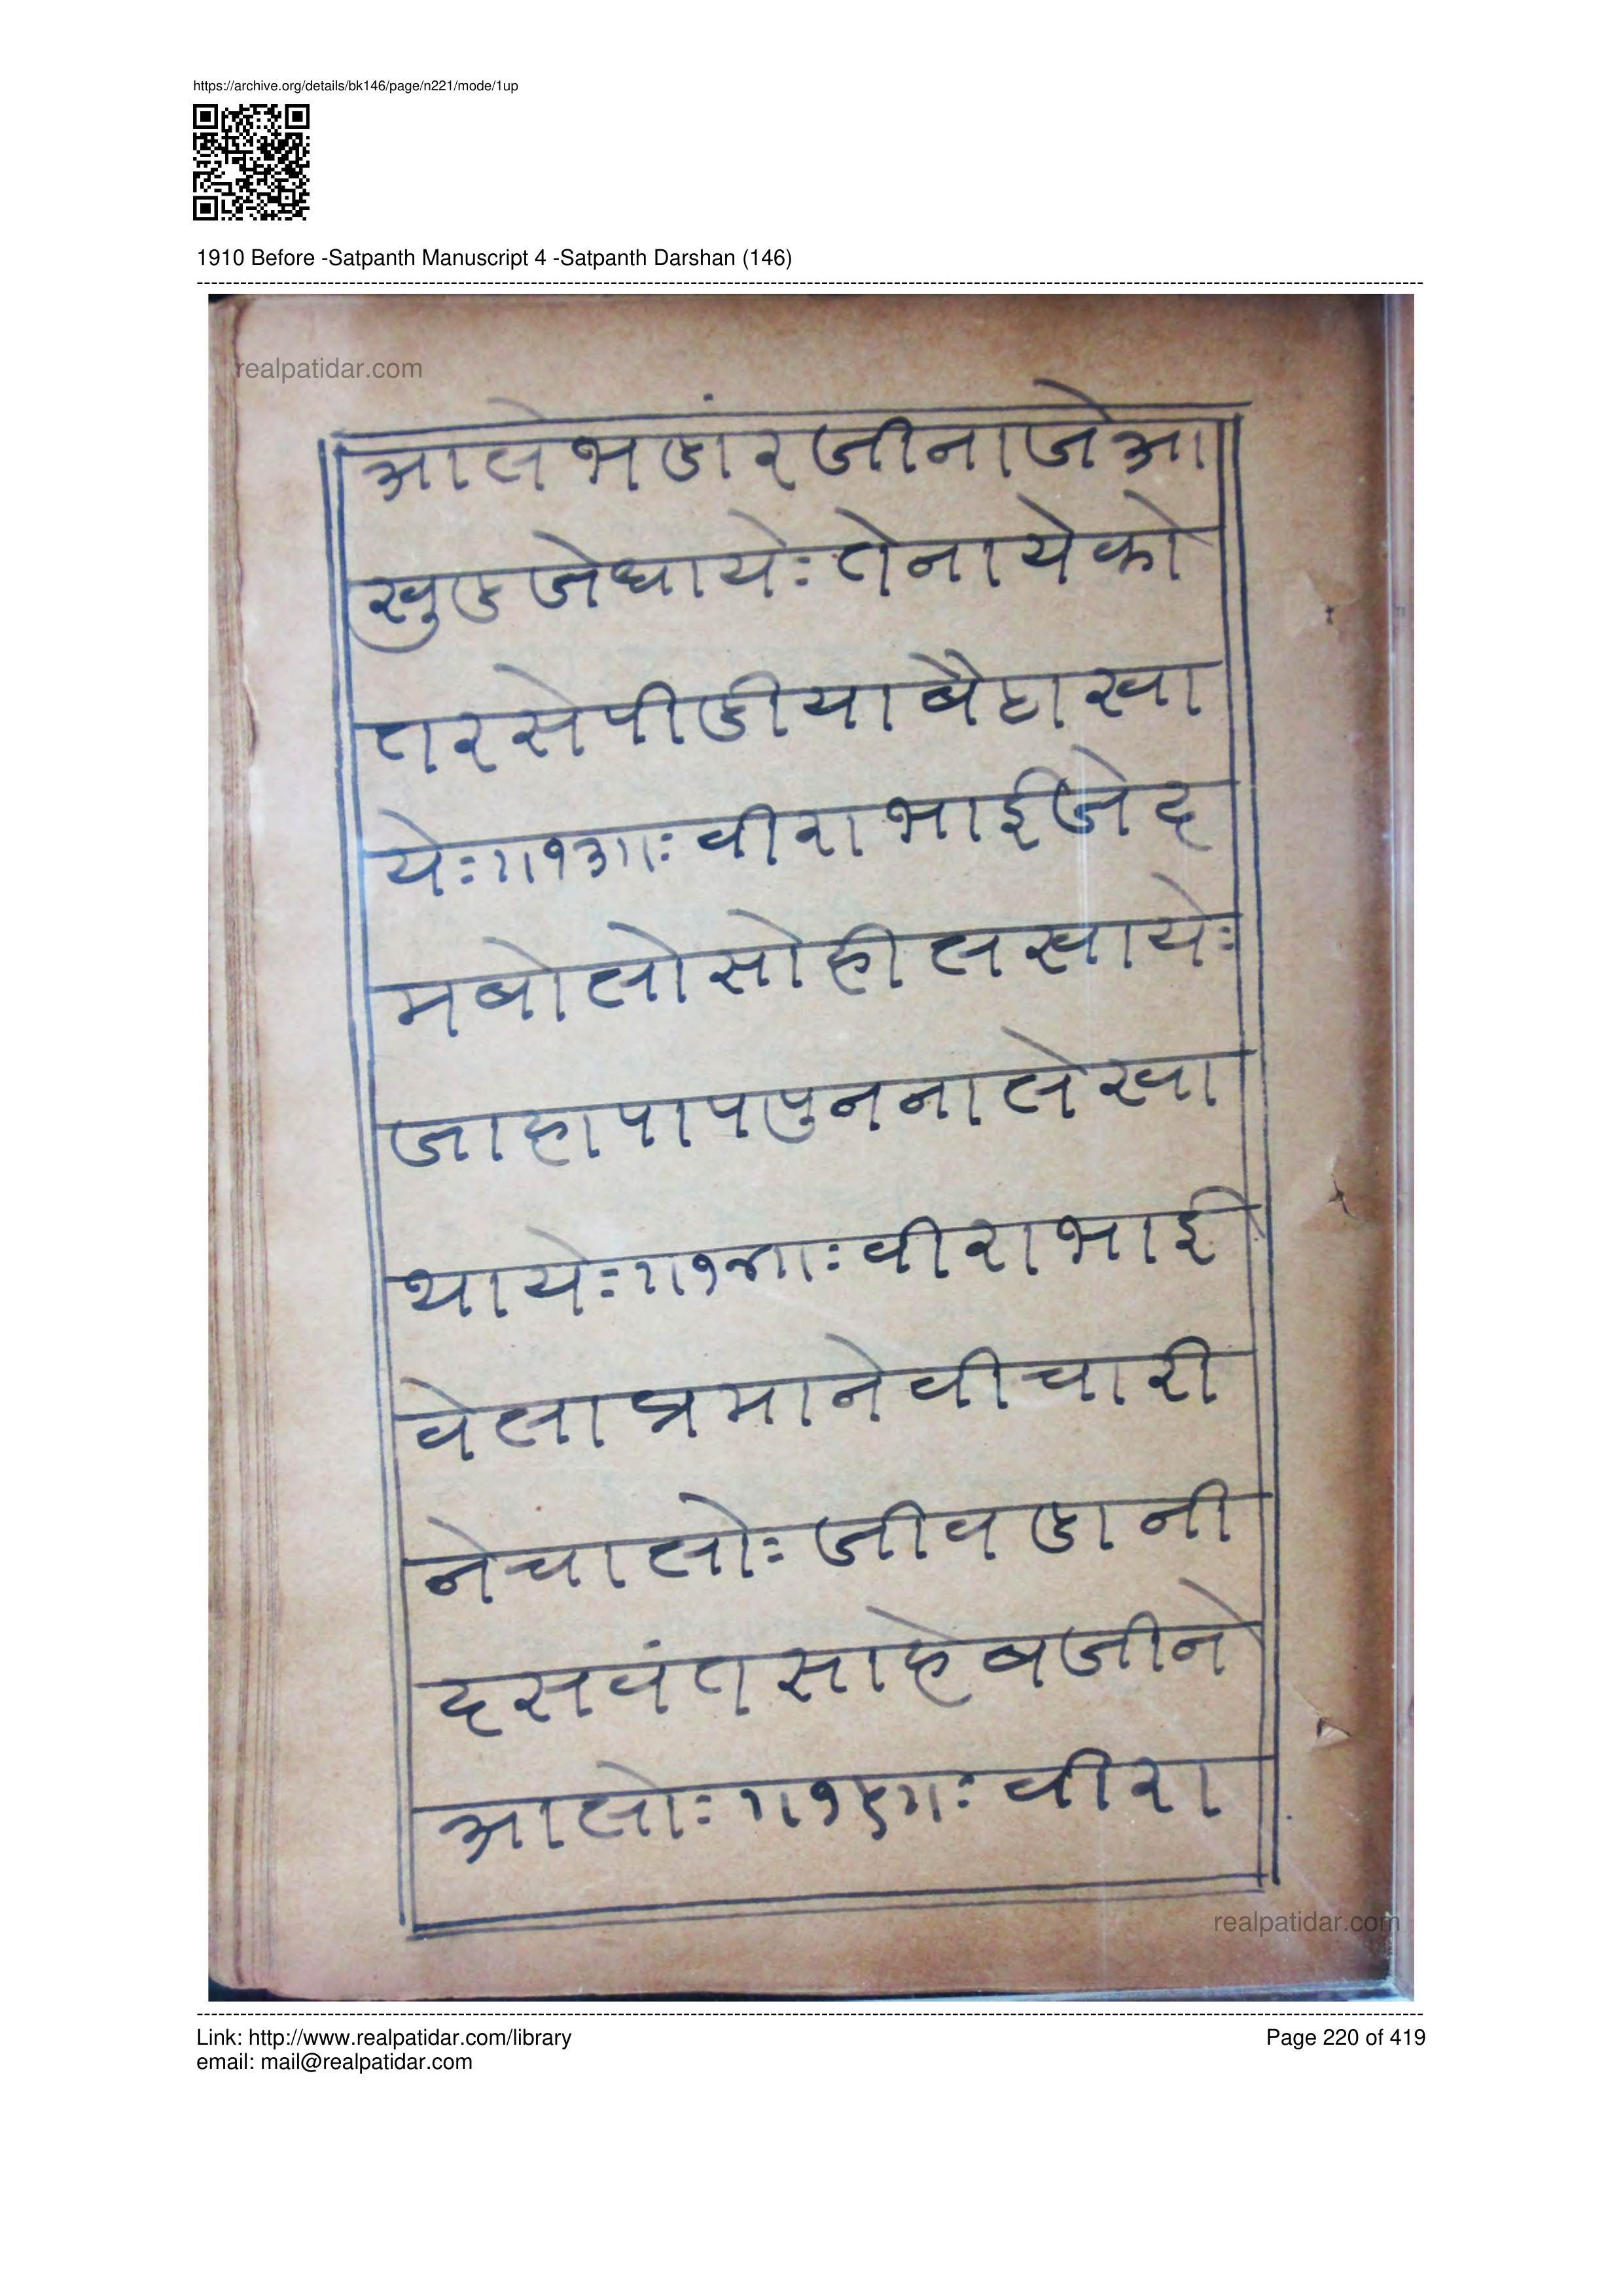 https://archive.org/details/bk146/page/n221/mode/1up
1910 Before -Satpanth Manuscript 4 -Satpanth Darshan (146)
realpatidar.com
आले भंडार जीना जे आ
खुड जे थाये: तेना येको
तर से पीडीया बैहा खा
ये:॥१३॥: वीरा भाई जे द
म बोलो सोही लखाये:
जाहा पाप पुनना लेखा
थाये:॥१४॥: वीरा भाई
वेला प्रमाने वीचारी
ने चालो: जीवडानी
दसवंत साहेबजीने
आलो:॥१५॥: वीरा
realpatidar.com
Link: http://www.realpatidar.com/library
email: mail@realpatidar.com
Page 220 of 419